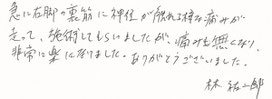 急に左脚の裏筋に神経が触れる様な痛みが
走って、施術してもらいましたが、痛みも無くなり、
非常に楽になりました。ありがとうございました。
林 祐一郎